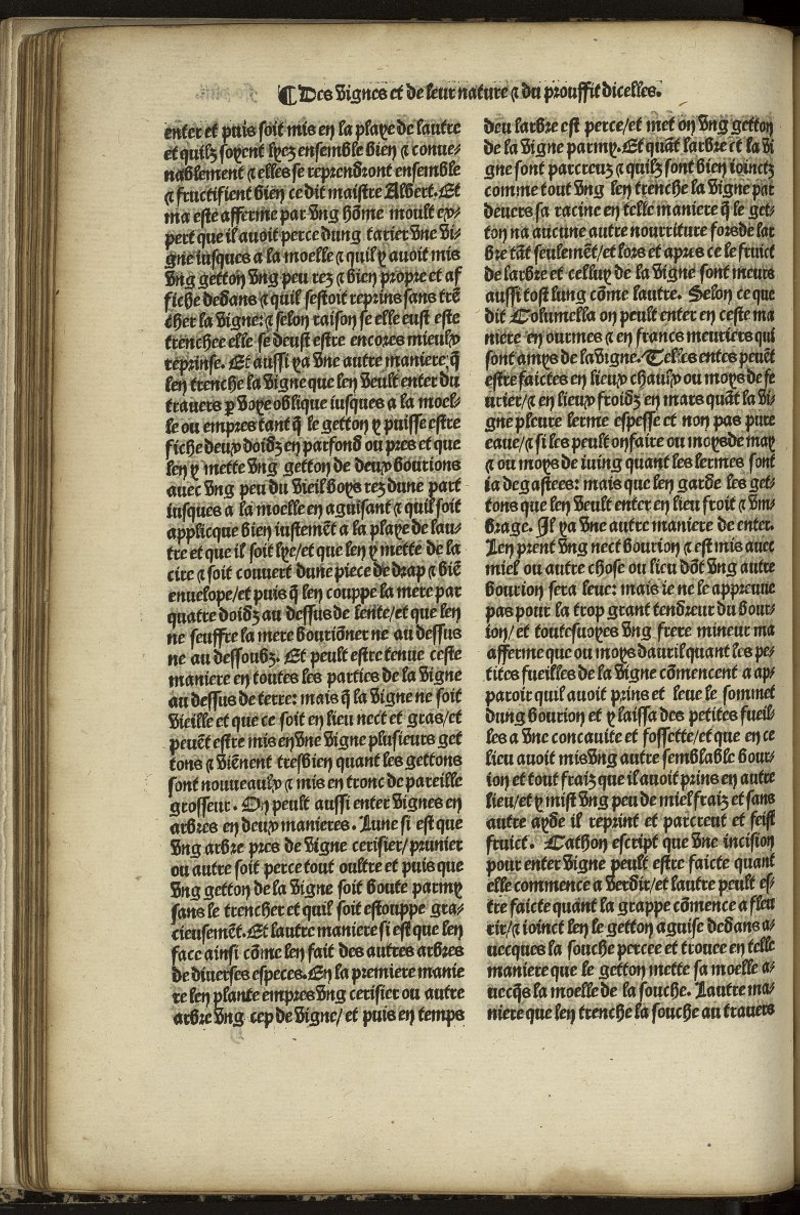 ¶ Des vignes et de leur nature ⁊ du prouffit dicelles.
enter et puis soit mis en la playe de lautre
et quilz soyent lyez ensemble bien ⁊ conue⸗
nablement ⁊ elles se reprendront ensemble
⁊ fructifient bien ce dit maistre Albert. Et
ma este afferme par vng hõme moult ex⸗
pert que il auoit perce dung tarier vne vi⸗
gne iusques a la moelle ⁊ quil y auoit mis
vng getton vng peu rez ⁊ bien propre et af
fiche dedans ⁊ quil sestoit reprins sans trẽ
cher la vigne: ⁊ selon raison se elle eust este
trenchee elle se deust estre encores mieulx
reprinse. Et aussi y a vne autre maniere q̃
len trenche la vigne que len veult enter du
trauers ꝑ voye oblique iusques a la moel⸗
le ou empres tant q̃ le getton y puisse estre
fiche deux doidz en parfond ou pres et que
len y mette vng getton de deux bourions
auec vng peu du vieil boys rez dune part
iusques a la moelle en aguisant ⁊ quil soit
applicque bien iustemẽt a la playe de lau⸗
tre et que il soit lye/et que len y mette de la
cire ⁊ soit couuert dune piece de drap ⁊ biẽ
enuelope/et puis q̃ len couppe la mere par
quatre doidz au dessus de lente/et que len
ne seuffre la mere bouriõner ne au dessus
ne au dessoubz. Et peult estre tenue ceste
maniere en toutes les parties de la vigne
au dessus de terre: mais q̃ la vigne ne soit
vieille et que ce soit en lieu nect et gras/et
peuẽt estre mis en vne vigne plusieurs get
tons ⁊ viẽnent tresbien quant les gettons
sont nouueaulx ⁊ mis en tronc de pareille
grosseur. On peult aussi enter vignes en
arbres en deux manieres. Lune si est que
vng arbre pres de vigne cerisier/prunier
ou autre soit perce tout oultre et puis que
vng getton de la vigne soit boute parmy
sans le trencher et quil soit estouppe gra⸗
cieusemẽt. Et lautre maniere si est que len
face ainsi cõme len fait des autres arbres
de diuerses especes. En la premiere manie
re len plante empres vng cerisier ou autre
arbre vng cep de vigne/ et puis en temps
deu larbre est perce/et met on vng getton
de la vigne parmy. Et quãt larbre et la vi
gne sont parcreuz ⁊ quilz sont bien ioinctz
comme tout vng len trenche la vigne par
deuers sa racine en telle maniere q̃ le get⸗
ton na aucune autre nourriture fors de lar
bre tãt seulemẽt/et lors et apres ce le fruict
de larbre et celluy de la vigne sont meurs
aussi tost lung cõme lautre. Selon ce que
dit Columella on peult enter en ceste ma
niere en ourmes ⁊ en francs meuriers qui
sont amys de la vigne. Telles entes peuẽt
estre faictes en lieux chaulx ou moys de fe
urier/⁊ en lieux froidz en mars quãt la vi⸗
gne pleure lerme espesse et non pas pure
eaue/⁊ si les peult on faire ou moys de may
⁊ ou moys de iuing quant les lermes sont
ia degastees: mais que len garde les get⸗
tons que len veult enter en lieu froit ⁊ vm⸗
brage. Il y a vne autre maniere de enter.
Len prent vng nect bourion ⁊ est mis auec
miel ou autre chose ou lieu dõt vng autre
bourion sera leue: mais ie ne le appreuue
pas pour la trop grant tendreur du bour⸗
ion/ et toutesuoyes vng frere mineur ma
afferme que ou moys dauril quant les pe⸗
tites fueilles de la vigne cõmencent a ap⸗
paroir quil auoit prins et leue le sommet
dung bourion et y laissa des petites fueil⸗
les a vne concauite et fossette/et que en ce
lieu auoit mis vng autre semblable bour⸗
ion et tout fraiz que il auoit prins en autre
lieu/et y mist vng peu de miel fraiz et sans
autre ayde il reprint et parcreut et feist
fruict. Cathon escript que vne incision
pour enter vigne peult estre faicte quant
elle commence a verdir/et lautre peult es⸗
tre faicte quant la grappe cõmence a fleu
rir/⁊ ioinct len le getton aguise dedans a⸗
uecques la souche percee et trouee en telle
maniere que le getton mette sa moelle a⸗
uecq̃s la moelle de la souche. Lautre ma⸗
niere que len trenche la souche au trauers